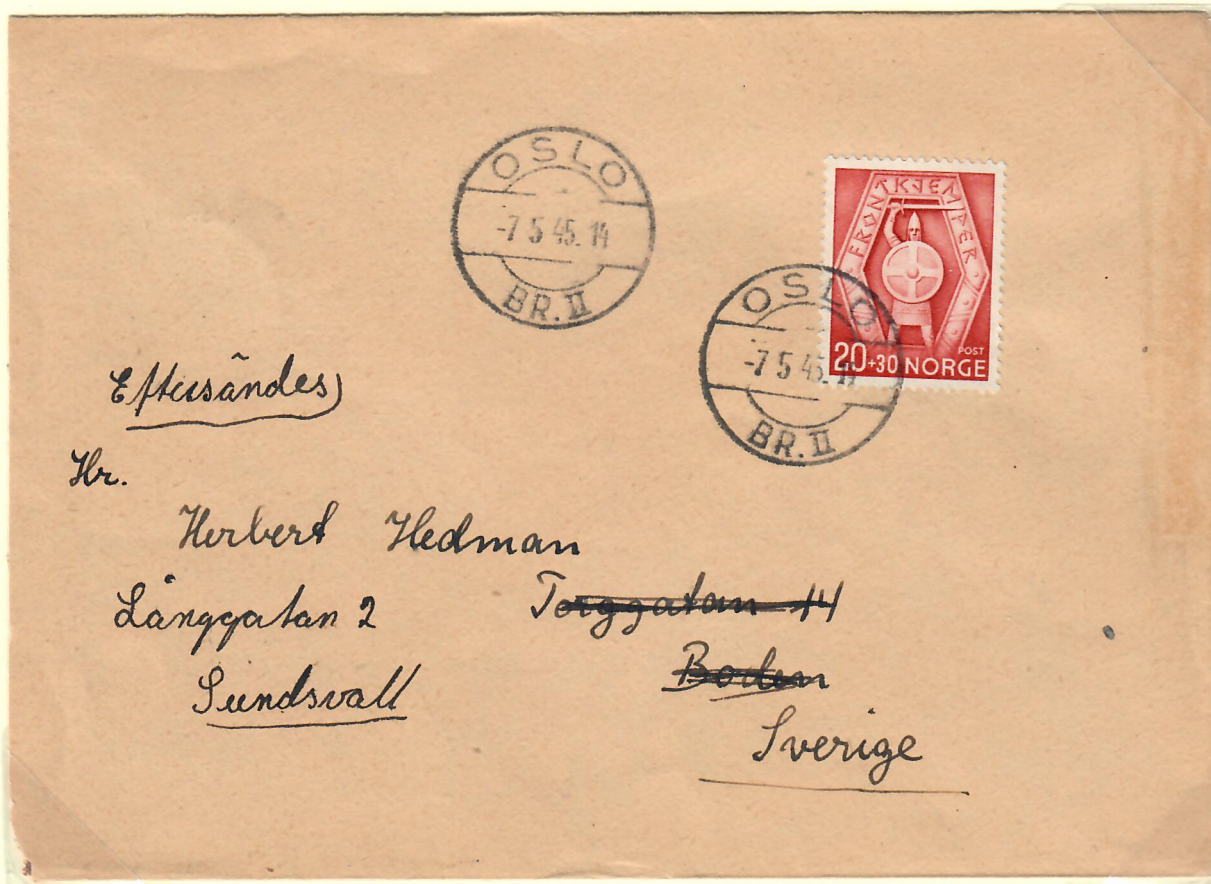 OSLO
-7 5 45. 14
BR. II
FRONTKJEMPER
POST
20+30 NORGE
OSLO
-7 5 45. 14
BR. II
Eftersändes
Hr.
Herbert Hedman
Långgatan 2
Torggatan 14
Sundsvall
Boden
Sverige